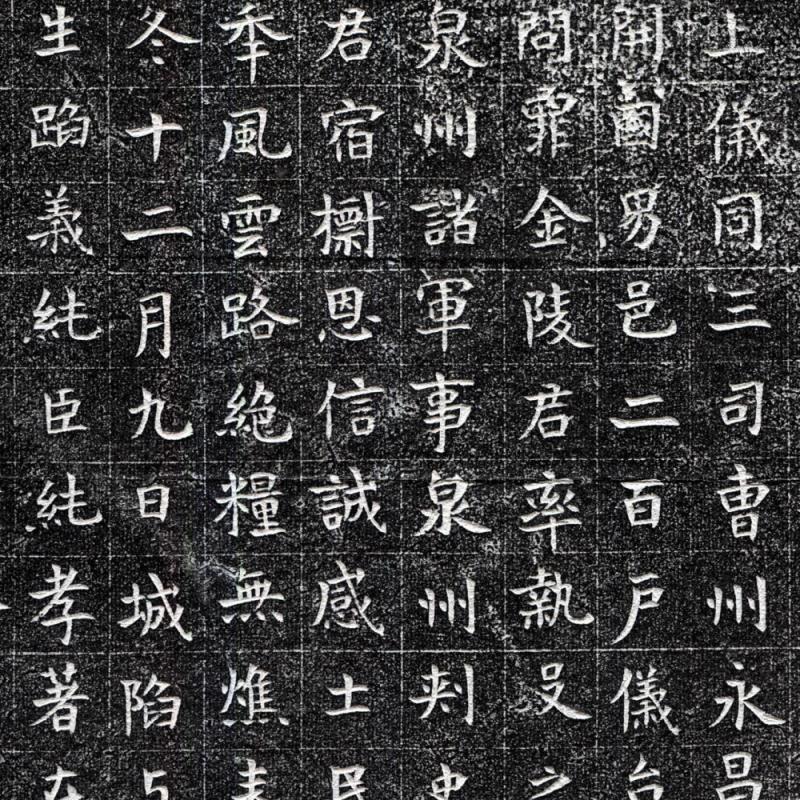 上儀同三司曹州永昌
開國男邑二百戶儀台
問罪金陵君率執殳之
泉州諸軍事泉州刾史
君宿衞恩信誠感士民
秊風雲路絶糧無樵
冬十二月九日城陷
生蹈義純臣純孝著在